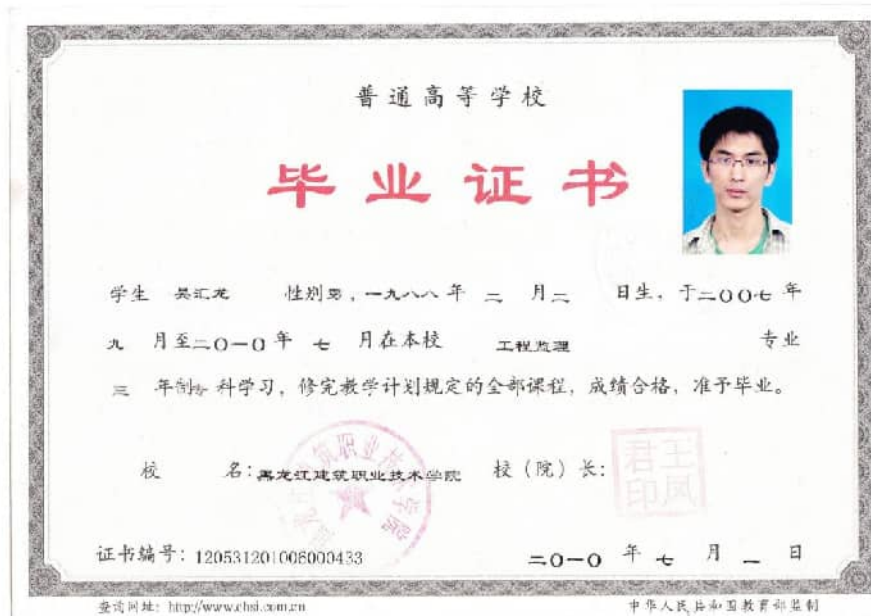 普通高等学校
毕业证书
学生 吴汇龙 性别男,一九八八年 二 月二 日生,于二〇〇七年
九 月至二〇一〇年 七 月在本校 工程监理 专业
三 年制专科学习,修完教学计划规定的全部课程,成绩合格,准予毕业。
校 名:黑龙江建筑职业技术学院 校(院)长:
王凤君印
证书编号:120531201006000433 二〇一〇 年 七 月 一 日
查询网址:http://www.chsi.com.cn 中华人民共和国教育部监制